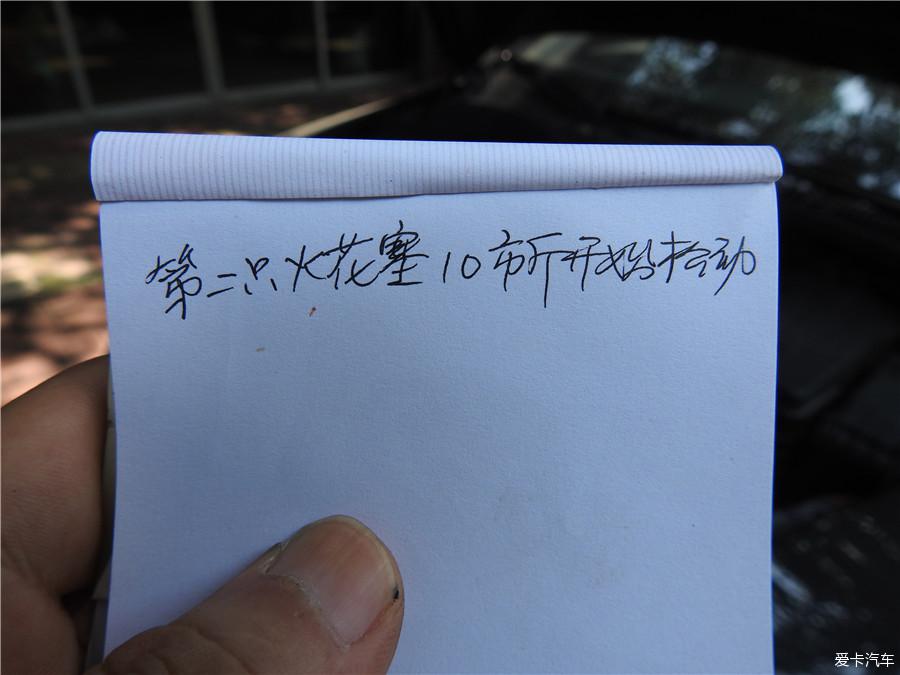 第二只火花塞10市斤开始松动
爱卡汽车